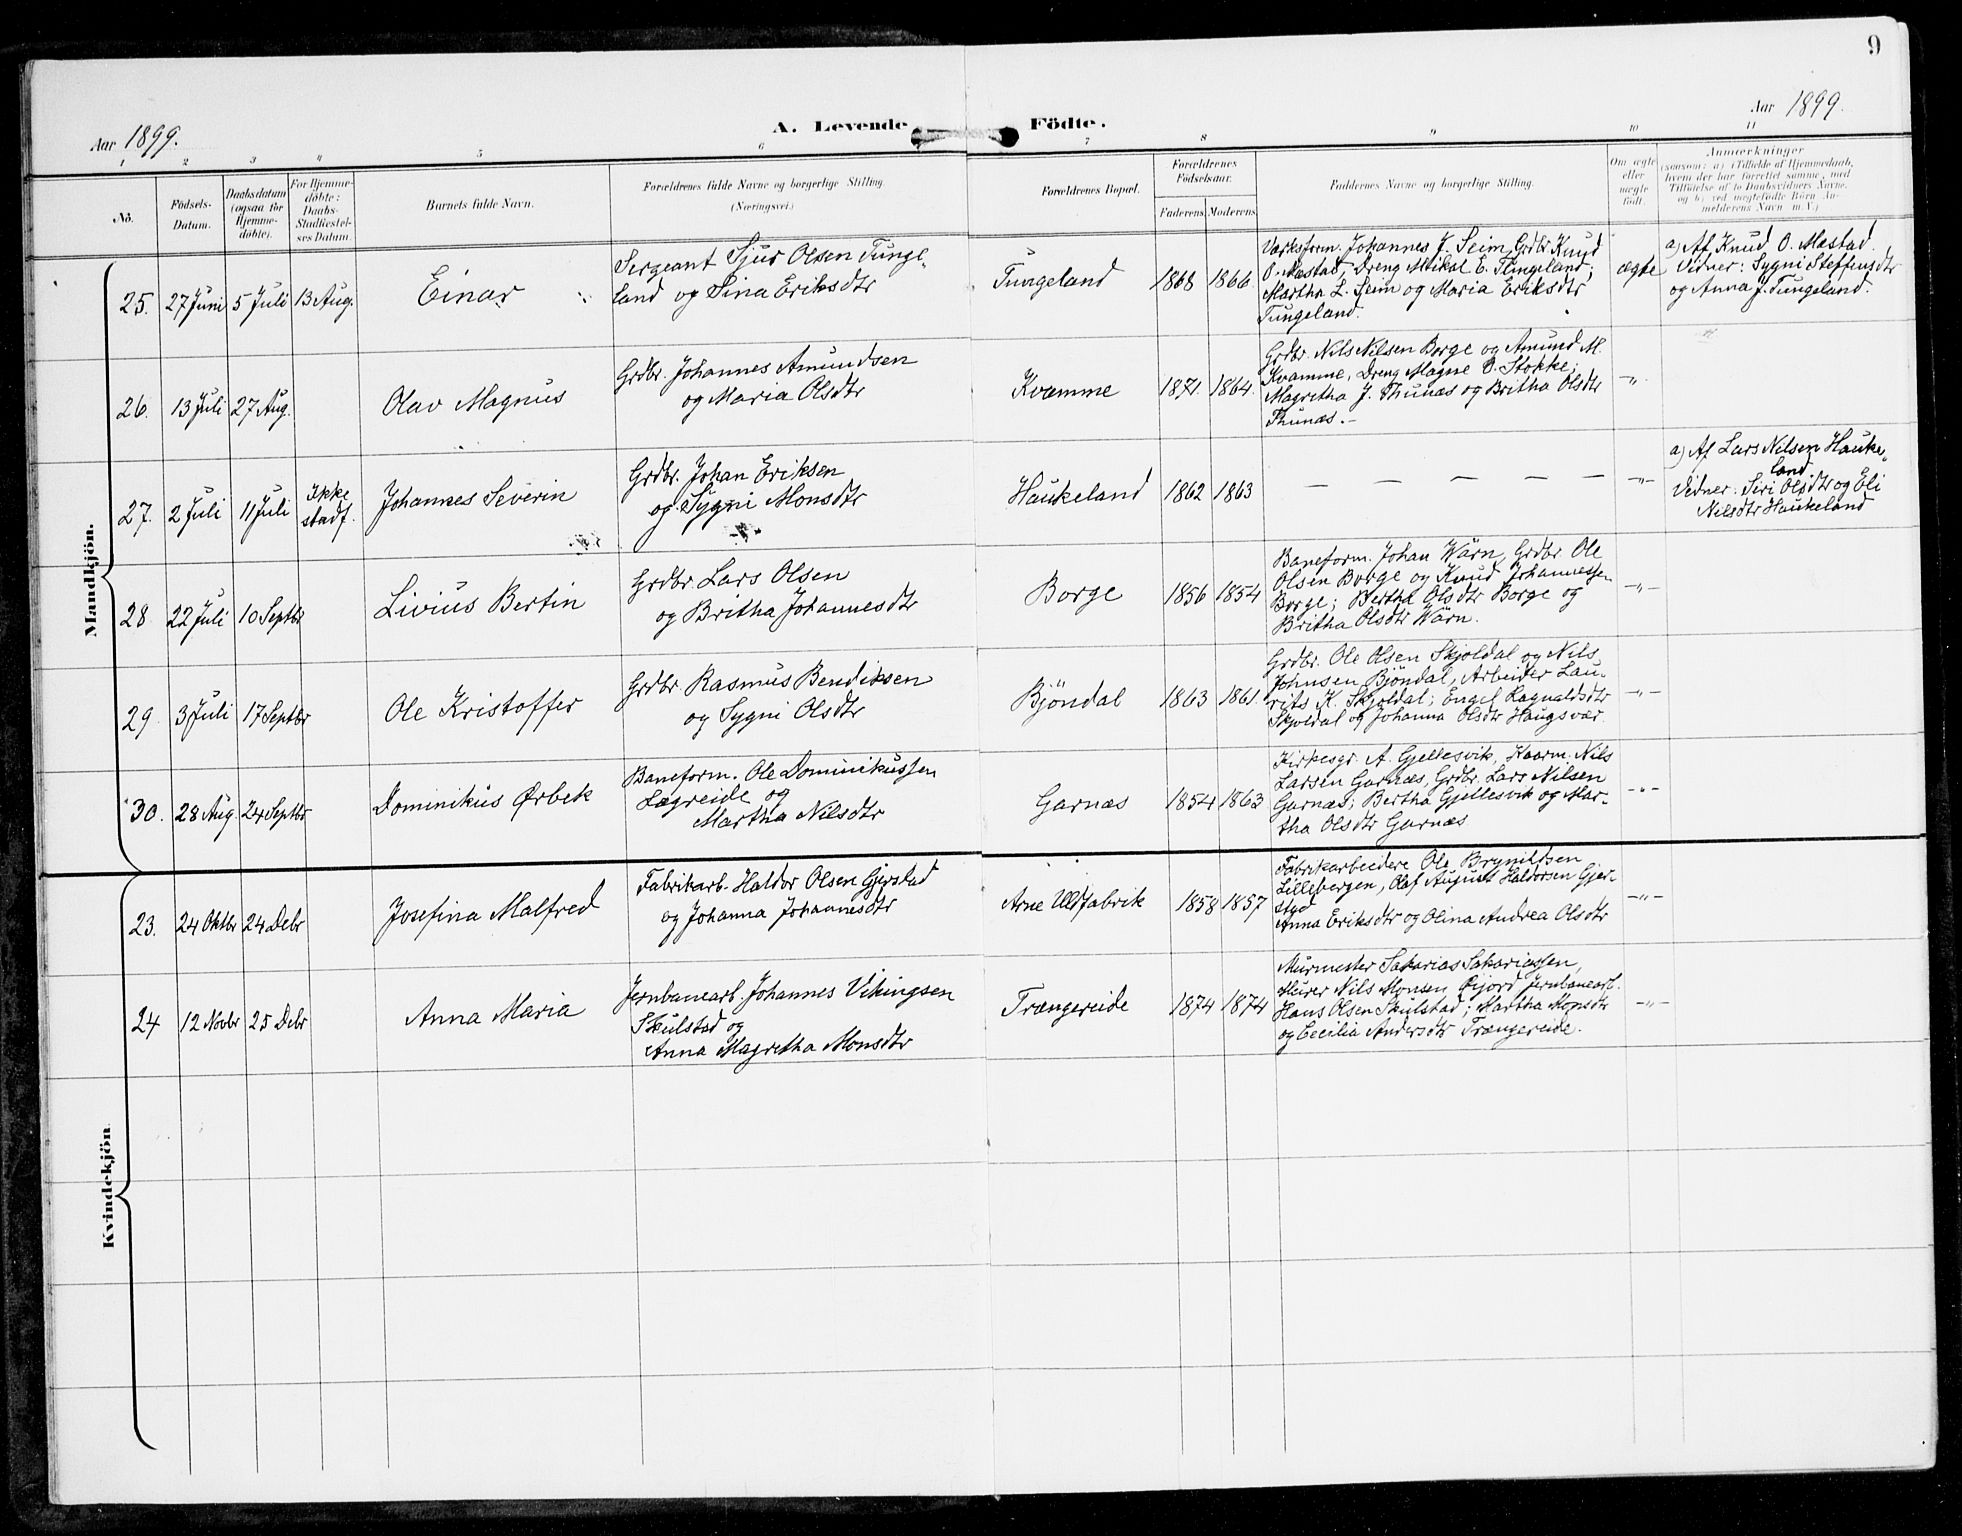 9
Aar 1899.
A. Levende Födte.
Aar 1899.
1 2 3 4 5 6 7 8 9 10 11
No.
Födsels-
Datum.
Daabsdatum
(ogsaa for
Hjemme-
döbte).
For Hjemme-
döbte:
Daabs-
Stadfæstel-
ses Datum.
Barnets fulde Navn.
Forældrenes fulde Navne og borgerlige Stilling.
(Næringsvei.)
Forældrenes Bopæl.
Forældrenes
Födselsaar.
Faderens. Moderens.
Faddernes Navne og borgerlige Stilling.
Om ægte
eller
uægte
födt.
Anmærkninger
(saasom: a) i Tilfælde af Hjemmedaab,
hvem der har forrettet samme, med
Tilföielse af to Daabsvidners Navne,
og b) ved uægtefödte Börn An-
melderens Navn m. V.)
Mandkjön.
25. 27 Juni 5 Juli 13 Aug. Einar
Sergeant Sjur Olsen Tunge-
land og Sina Eriksdtr
Tungeland 1868 1866
Værksform. Johannes J. Seim, Grdbr Knud
O. Mæstad, Dreng Mikal E. Tungeland;
Martha L. Seim og Maria Eriksdtr
Tungeland.
ægte
a) Af Knud O. Mæstad.
Vidner: Sygni Steffensdtr
og Anna J. Tungeland.
26. 13 Juli 27 Aug. Olav Magnus
Grdbr. Johannes Amundsen
og Maria Olsdtr
Kvamme 1871. 1864.
Grdbr. Nils Nilsen Borge og Amund M.
Kvamme, Dreng Magne O. Stokke;
Magretha J. Thunæs og Britha Olsdtr
Thunæs.-
-"-
27. 2 Juli 11 Juli Ikke
stadf.
Johannes Severin
Grdbr. Johan Eriksen
og Sygni Monsdtr
Haukeland 1862 1863
— — — — —
-"-
a) Af Lars Nilsen Hauke-
land
Vidner: Siri Olsdtr og Eli
Nilsdtr Haukeland
28 22 Juli 10 Septbr Livius Bertin
Grdbr. Lars Olsen
og Britha Johannesdtr
Borge 1856 1854
Baneform. Johan Wärn, Grdbr Ole
Olsen Borge og Knud Johannessen
Borge; Bertha Olsdtr Borge og
Britha Olsdtr Wärn.
-"-
29. 3 Juli 17 Septbr Ole Kristoffer
Grdbr. Rasmus Bendiksen
og Sygni Olsdtr
Bjöndal 1863 1861.
Grdbr. Ole Olsen Skjoldal og Nils
Johnsen Bjöndal, Arbeider Lau-
rits K. Skjoldal; Engel Ragnaldsdtr
Skjoldal og Johanna Olsdtr Haugsvær.
-"-
30. 28 Aug. 24 Septbr Dominikus Ørbek
Baneform. Ole Dominikussen
Lægreide og
Martha Nilsdtr
Garnæs 1854 1863
Kirkesgr. A. Gjellesvik, Haarm. Nils
Larsen Garnæs, Grdbr. Lars Nilsen
Garnæs; Bertha Gjellesvik og Mar-
tha Olsdtr Garnæs
-"-
Kvindekjön.
23. 24 Oktbr 24 Debr Josefina Malfred
Fabrikarb. Haldor Olsen Gjerstad
og Johanna Johannesdtr
Arne Uldfabrik 1858 1857
Fabrikarbeidere Ole Brynildsen
Lillebergen, Olaf August Haldorsen Gjer-
stad
Anna Eriksdtr og Olina Andrea Olsdtr
-"-
24 12 Novbr 25 Debr Anna Maria
Jernbanearb. Johannes Vikingsen
Skulstad og
Anna Magretha Monsdtr
Trængereide 1874 1874
Murmester Sakarias Sakariassen,
Murer Nils Monsen Öijord, Jernbanearb.
Hans Olsen Skulstad; Martha Monsdtr
og Cecilia Andersdtr Trængereide.
-"-